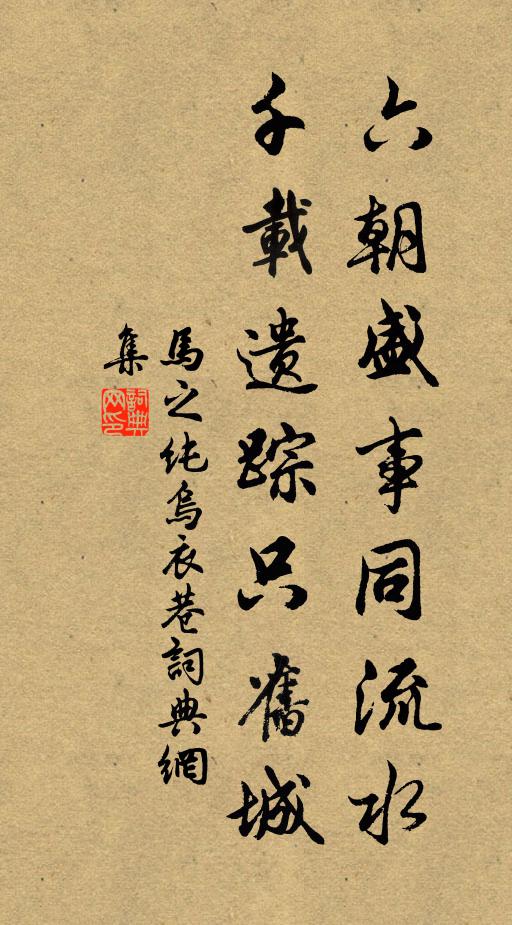 六朝盛事同流水
千載遺踪只舊城
馬之純烏衣巷詞典網
集
詞典網印